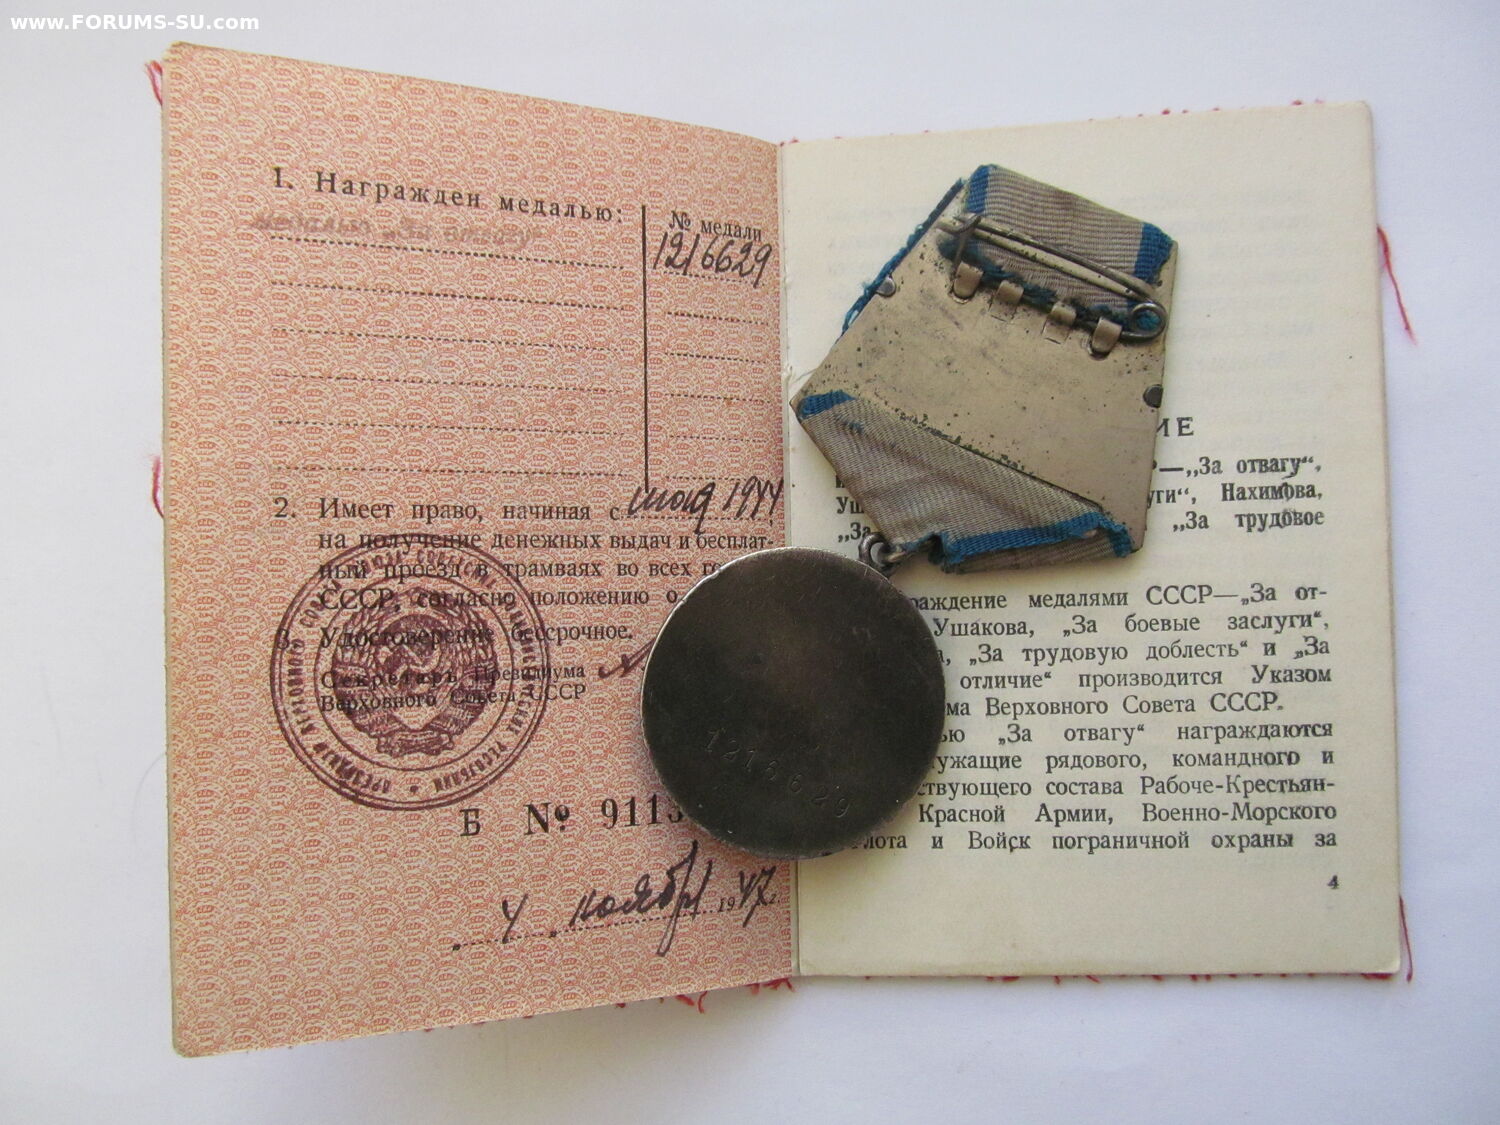 www.FORUMS-SU.com
1. Награжден медалью:
№ медали
медалью „За отвагу“
1216629
2. Имеет право, начиная с мая 1944,
на получение денежных выдач и бесплат-
ный проезд в трамваях во всех
СССР, согласно положению о
3. Удостоверение бессрочное.
Секретарь Президиума
Верховного Совета СССР
Б № 911
4 ноября 1947 г.
1216629
ИЕ
Р—„За отвагу“,
уги“, Нахимова,
„За „За трудовое
раждение медалями СССР—„За от-
Ушакова, „За боевые заслуги“,
а, „За трудовую доблесть“ и „За
отличие“ производится Указом
ма Верховного Совета СССР.
ью „За отвагу“ награждаются
ужащие рядового, командного и
ствующего состава Рабоче-Крестьян-
Красной Армии, Военно-Морского
лота и Войск пограничной охраны за
4